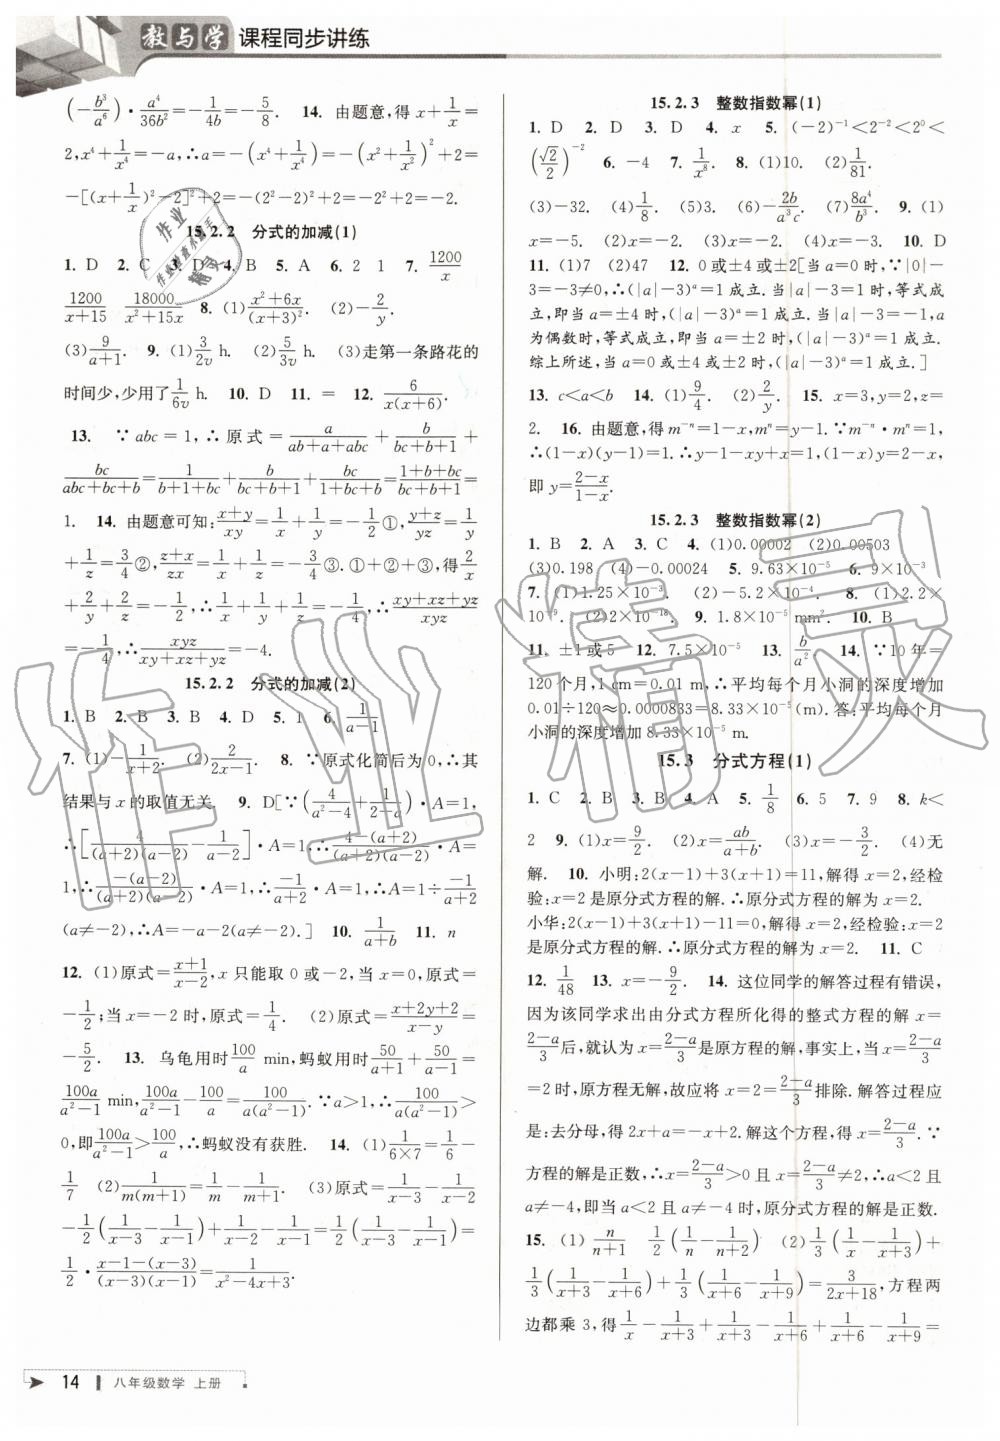 教与学 课程同步讲练
(-b³/a⁶)·a⁴/36b²=-1/4b=-5/8. 14. 由题意,得 x+1/x=
2,x⁴+1/x⁴=-a,∴a=-(x⁴+1/x⁴)=-(x²+1/x²)²+2=
-[(x+1/x)²-2]²+2=-(2²-2)²+2=-2²+2=-2.
15.2.2 分式的加减(1)
1. D 2. C 3. D 4. B 5. A 6. 2 1 7. 1200/x
1200/(x+15) 18000/(x²+15x) 8. (1)(x²+6x)/(x+3)². (2)-2/y.
(3)9/(a+1). 9. (1)3/2v h. (2)5/3v h. (3)走第一条路花的
时间少,少用了1/6v h. 10. D 11. = 12. 6/x(x+6).
13. ∵abc=1,∴原式=a/(ab+a+abc)+b/(bc+b+1)+
bc/(abc+bc+b)=1/(b+1+bc)+b/(bc+b+1)+bc/(1+bc+b)=(1+b+bc)/(1+b+bc)=
1. 14. 由题意可知:(x+y)/xy=1/x+1/y=-1/2①,(y+z)/yz=1/y
+1/z=3/4②,(z+x)/zx=1/z+1/x=-3/4③.①+②+③,得2/x
+2/y+2/z=-1/2,∴1/x+1/y+1/z=-1/4,∴(xy+xz+yz)/xyz
=-1/4,∴xyz/(xy+xz+yz)=-4.
15.2.2 分式的加减(2)
1. B 2. B 3. B 4. D 5. 1 6. 1/(a-1)
7. (1)-1/(x+2). (2)2/(2x-1). 8. ∵原式化简后为0,∴其
结果与x的取值无关. 9. D[∵(4/(a²-4)+1/(2-a))·A=1,
∴[4/(a+2)(a-2)-1/(a-2)]·A=1,∴(4-(a+2))/(a+2)(a-2)·A=
1,∴-(a-2)/(a+2)(a-2)·A=1,∴-1/(a+2)·A=1,∴A=1÷-1/(a+2)
(a≠-2),∴A=-a-2(a≠-2).] 10. 1/(a+b) 11. n
12. (1)原式=(x+1)/(x-2),x只能取0或-2,当x=0时,原式=
-1/2;当x=-2时,原式=1/4. (2)原式=(x+2y+2)/(x-y)=
-5/2. 13. 乌龟用时100/a min,蚂蚁用时50/(a+1)+50/(a-1)=
100a/(a²-1) min,100a/(a²-1)-100/a=100/a(a²-1).∵a>1,∴100/a(a²-1)>
0,即100a/(a²-1)>100/a,∴蚂蚁没有获胜. 14. (1)1/(6×7)=1/6-
1/7 (2)1/m(m+1)=1/m-1/(m+1). (3)原式=1/(x-3)-1/(x-2)
-1/2(1/(x-3)-1/(x-1))+1/(x-2)-1/(x-1)=1/2(1/(x-3)-1/(x-1))=
1/2·(x-1-(x-3))/(x-3)(x-1)=1/(x²-4x+3).
14 八年级数学 上册
15.2.3 整数指数幂(1)
1. D 2. D 3. D 4. x 5. (-2)⁻¹<2⁻²<2⁰<
(√2/2)⁻² 6. -4 7. 1/x⁸. 8. (1)10. (2)1/81.
(3)-32. (4)1/8. (5)3. (6)-2b/a³c. (7)8a⁴/b³. 9. (1)
x=-5. (2)x=-2. (3)x=-2. (4)x=-3. 10. D
11. (1)7 (2)47 12. 0或±4或±2[当a=0时,∵|0|-
3=-3≠0,∴(|a|-3)ᵃ=1成立.当|a|-3=1时,等式成
立,即当a=±4时,(|a|-3)ᵃ=1成立.当|a|-3=-1,a
为偶数时,等式成立,即当a=±2时,(|a|-3)ᵃ=1成立.
综上所述,当a=0或±4或±2时,(|a|-3)ᵃ=1成立.]
13. c<a<b 14. (1)9/4. (2)2/y. 15. x=3,y=2,z=
2. 16. 由题意,得m⁻ⁿ=1-x,mⁿ=y-1.∵m⁻ⁿ·mⁿ=1,
∴(1-x)(y-1)=1.∴y-1-xy+x=1,(1-x)y=2-x,
即y=(2-x)/(1-x).
15.2.3 整数指数幂(2)
1. B 2. A 3. C 4. (1)0.00002 (2)0.00503
(3)0.198 (4)-0.00024 5. 9.63×10⁻⁵ 6. 9×10⁻³
7. (1)1.25×10⁻³. (2)-5.2×10⁻⁴. 8. (1)2.2×
10⁻⁹. (2)2×10⁻¹⁸. 9. 1.8×10⁻⁵ mm². 10. B
11. ±1或5 12. 7.5×10⁻⁵ 13. b/a². 14. ∵10年=
120个月,1 cm=0.01 m,∴平均每个月小洞的深度增加
0.01÷120≈0.0000833=8.33×10⁻⁵(m).答:平均每个月
小洞的深度增加8.33×10⁻⁵ m.
15.3 分式方程(1)
1. C 2. B 3. B 4. A 5. 1/8 6. 5 7. 9 8. k<
2 9. (1)x=9/2. (2)x=ab/(a+b). (3)x=-3/2. (4)无
解. 10. 小明:2(x-1)+3(x+1)=11,解得x=2,经检
验:x=2是原分式方程的解.∴原分式方程的解为x=2.
小华:2(x-1)+3(x+1)-11=0,解得x=2,经检验:x=2
是原分式方程的解.∴原分式方程的解为x=2. 11. C
12. 1/48 13. x=-9/2. 14. 这位同学的解答过程有错误,
因为该同学求出由分式方程所化得的整式方程的解x=
(2-a)/3后,就认为x=(2-a)/3是原方程的解,事实上,当x=(2-a)/3
=2时,原方程无解,故应将x=2=(2-a)/3排除.解答过程应
是:去分母,得2x+a=-x+2.解这个方程,得x=(2-a)/3.∵
方程的解是正数,∴x=(2-a)/3>0且x=(2-a)/3≠2,∴a<2且
a≠-4,即当a<2且a≠-4时,原分式方程的解是正数.
15. (1)n/(n+1) 1/2(1/n-1/(n+2)) (2)1/3(1/x-1/(x+3))+
1/3(1/(x+3)-1/(x+6))+1/3(1/(x+6)-1/(x+9))=3/(2x+18),方程两
边都乘3,得1/x-1/(x+3)+1/(x+3)-1/(x+6)+1/(x+6)-1/(x+9)=
作业精灵